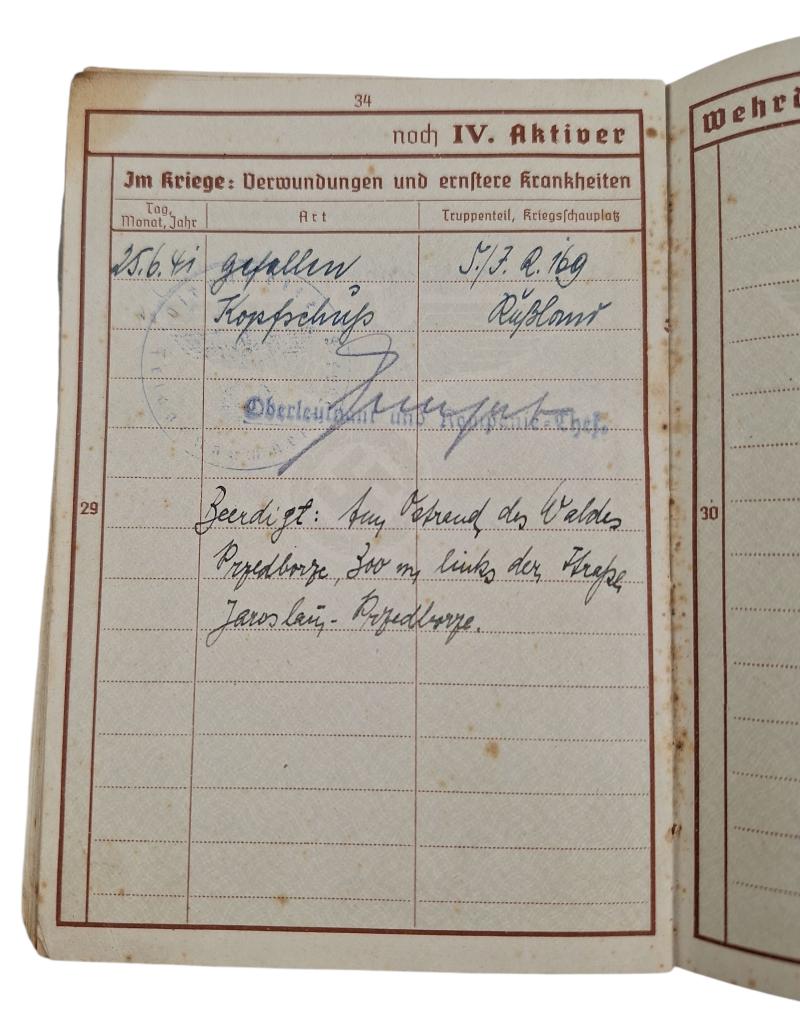 34
noch IV. Aktiver
Wehrd
Im Kriege: Verwundungen und ernstere Krankheiten
Tag, Monat, Jahr
Art
Truppenteil, Kriegsschauplatz
25.6.41 gefallen 5./J.R. 169
Kopfschuß Rußland
Oberleutnant und Kompanie-Chef.
29
30
Beerdigt: Am Ostrand des Waldes
Przedborze, 300 m links der Straße
Jaroslau - Przedborze.